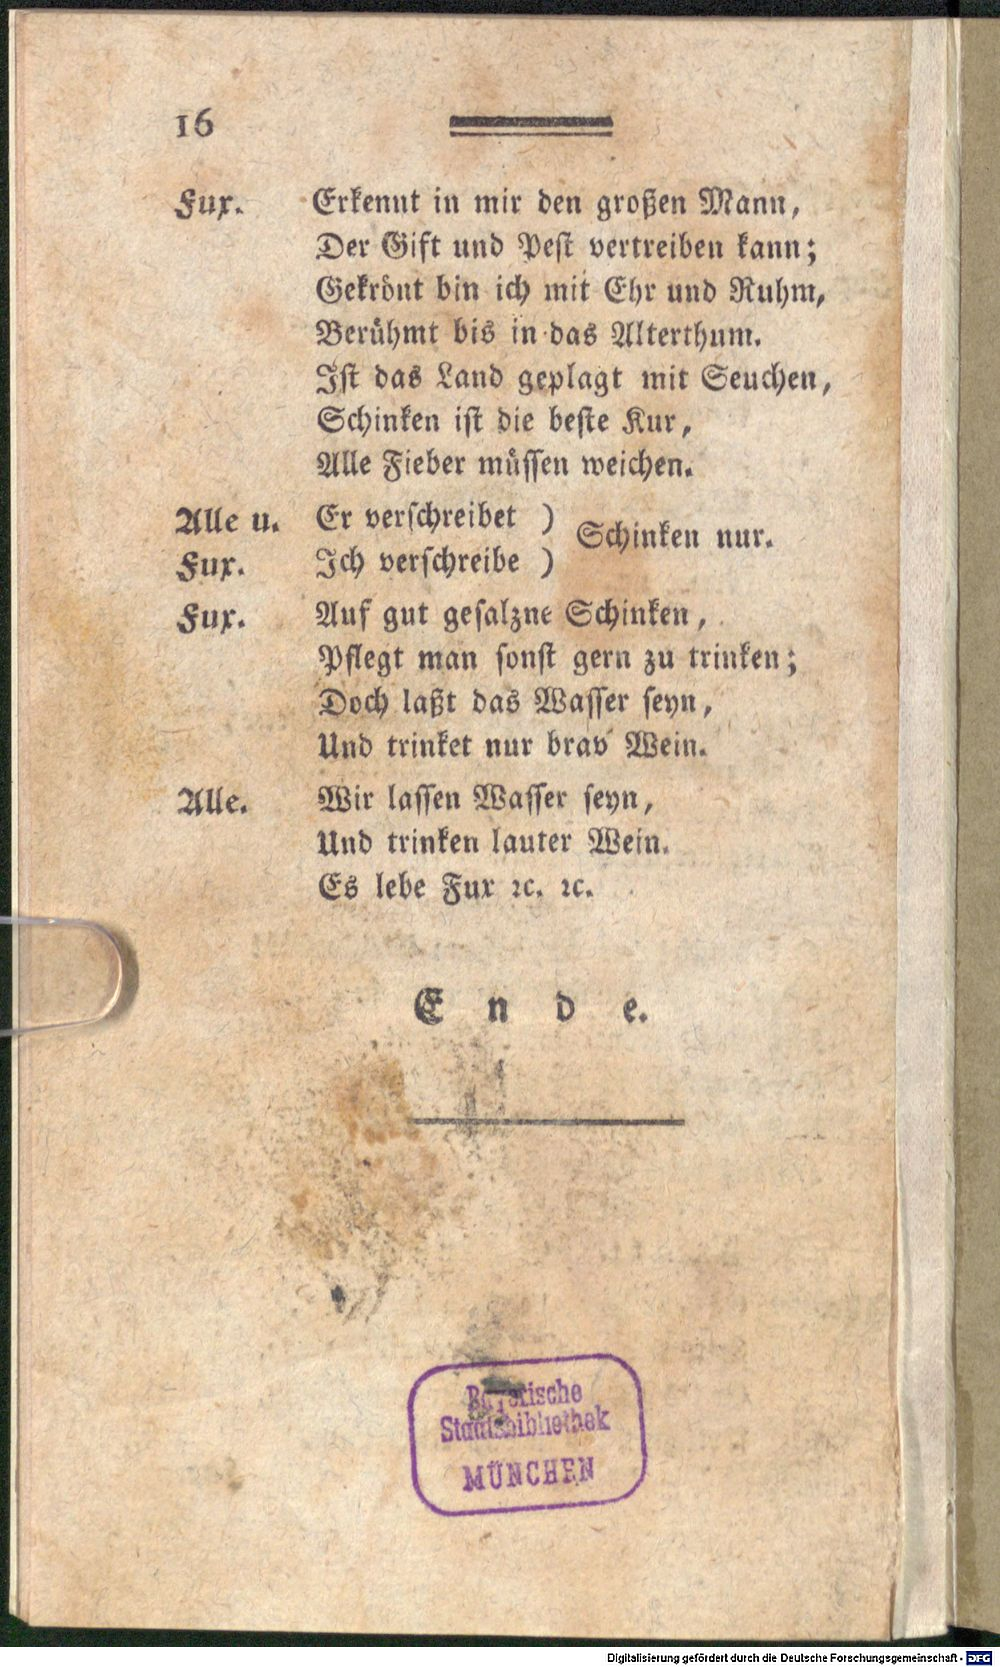 16
Fux. Erkennt in mir den großen Mann,
Der Gift und Pest vertreiben kann;
Gekrönt bin ich mit Ehr und Ruhm,
Berühmt bis in das Alterthum.
Ist das Land geplagt mit Seuchen,
Schinken ist die beste Kur,
Alle Fieber müssen weichen.
Alle u. Er verschreibet )
Schinken nur.
Fux. Ich verschreibe )
Fux. Auf gut gesalzne Schinken,
Pflegt man sonst gern zu trinken;
Doch laßt das Wasser seyn,
Und trinket nur brav Wein.
Alle. Wir lassen Wasser seyn,
Und trinken lauter Wein.
Es lebe Fux ꝛc. ꝛc.
Ende.
Bayerische
Staatsbibliothek
MÜNCHEN
Digitalisierung gefördert durch die Deutsche Forschungsgemeinschaft - DFG